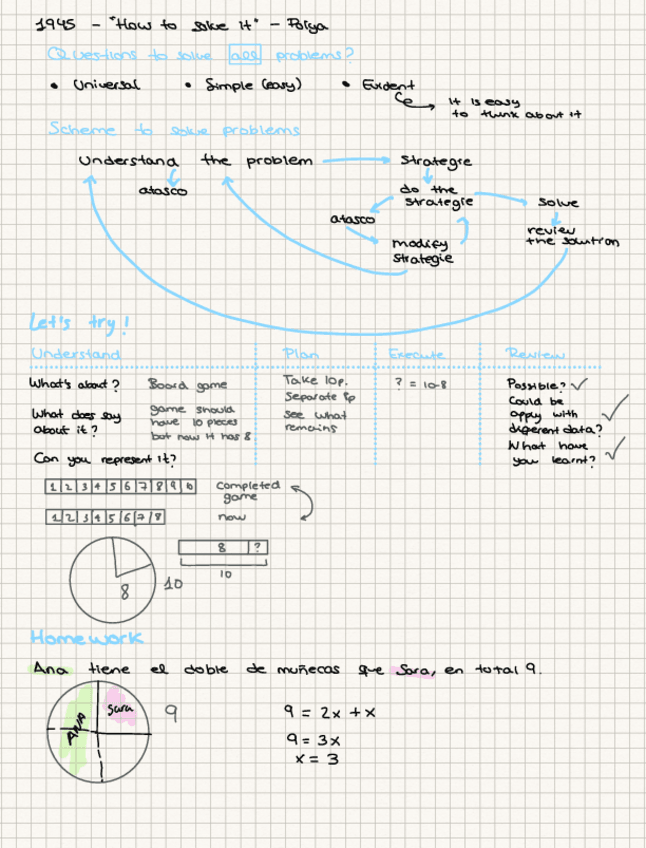 1945 - "How to solve it" - Polya
Questions to solve aos problems?
• Universal • Simple (easy) • Evident
it is easy
to think about it
Scheme to solve problems
Understand the problem
Strategie
atasco
do the
strategie
solve
atasco
modify
strategie
review
the solution
Let's try!
Understand Plan Execute Review
What's about? Board game
What does say
about it?
game should
have 10 pieces
but now it has 8
Can you represent it?
Take 10p.
Separate 8p
see what
remains
? = 10-8
Possible? ✓
Could be
apply with
different data? ✓
What have
you learnt? ✓
1 2 3 4 5 6 7 8 9 10
completed
game
1 2 3 4 5 6 7 8
now
8
10
8 ?
10
Homework
Ana tiene el doble de muñecas que Sara, en total 9.
ANA
Sara
9
9 = 2x + x
9 = 3x
x = 3